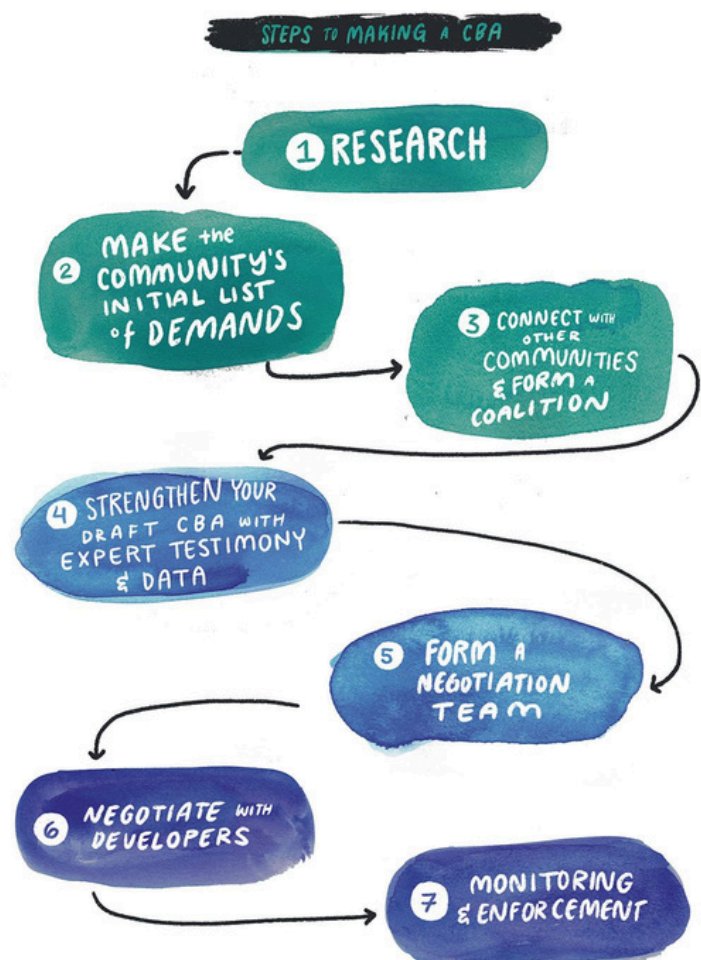 STEPS TO MAKING A CBA
1 RESEARCH
2 MAKE the
COMMUNITY'S
INITIAL LIST
of DEMANDS
3 CONNECT WITH
OTHER
COMMUNITIES
& FORM A
COALITION
4 STRENGTHEN YOUR
DRAFT CBA WITH
EXPERT TESTIMONY
& DATA
5 FORM A
NEGOTIATION
TEAM
6 NEGOTIATE WITH
DEVELOPERS
7 MONITORING
& ENFORCEMENT